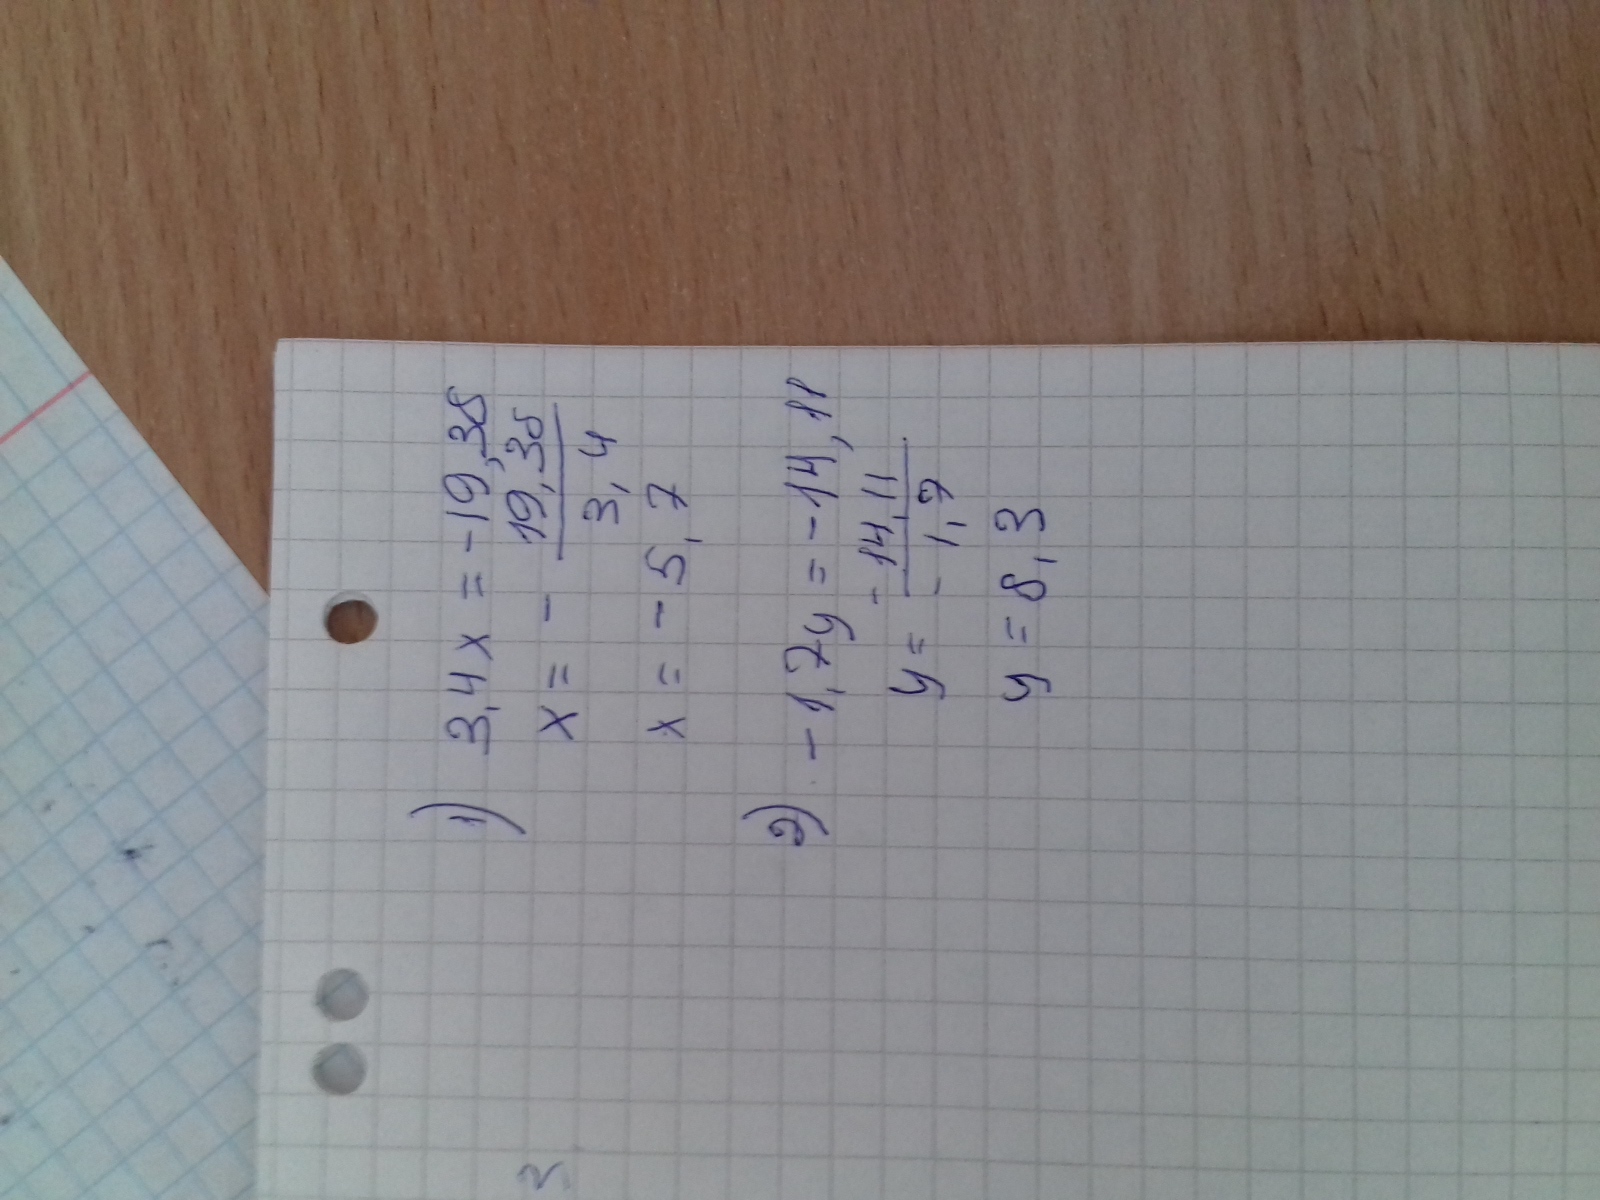 1) 3,4x = -19,38
x = - 19,38 / 3,4
x = - 5,7
2) - 1,7y = - 14,11
y = - 14,11 / - 1,7
y = 8,3
3